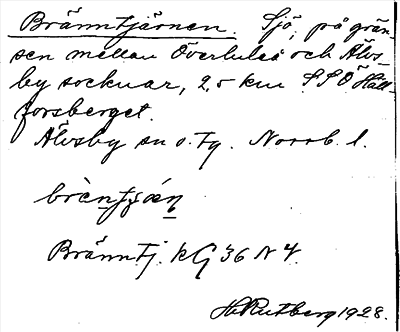 Bränntjärnen. Sjö, på grän-
sen mellan Överluleå och Älvs-
by socknar, 2,5 km SSÖ Häll-
forsberget.
Älvsby sn o. Tg. Norrb. l.
brèntjǻn
Bränntj. kG 36 N 4.
H. Rutberg 1928.